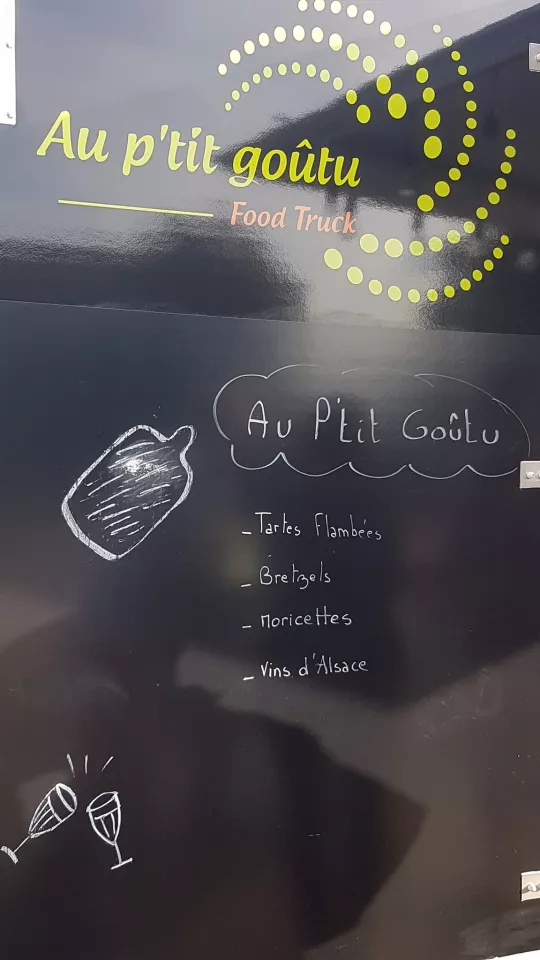 Au p'tit goûtu
Food Truck
Au P'tit Goûtu
- Tartes Flambées
- Bretzels
- Moricettes
- Vins d'Alsace